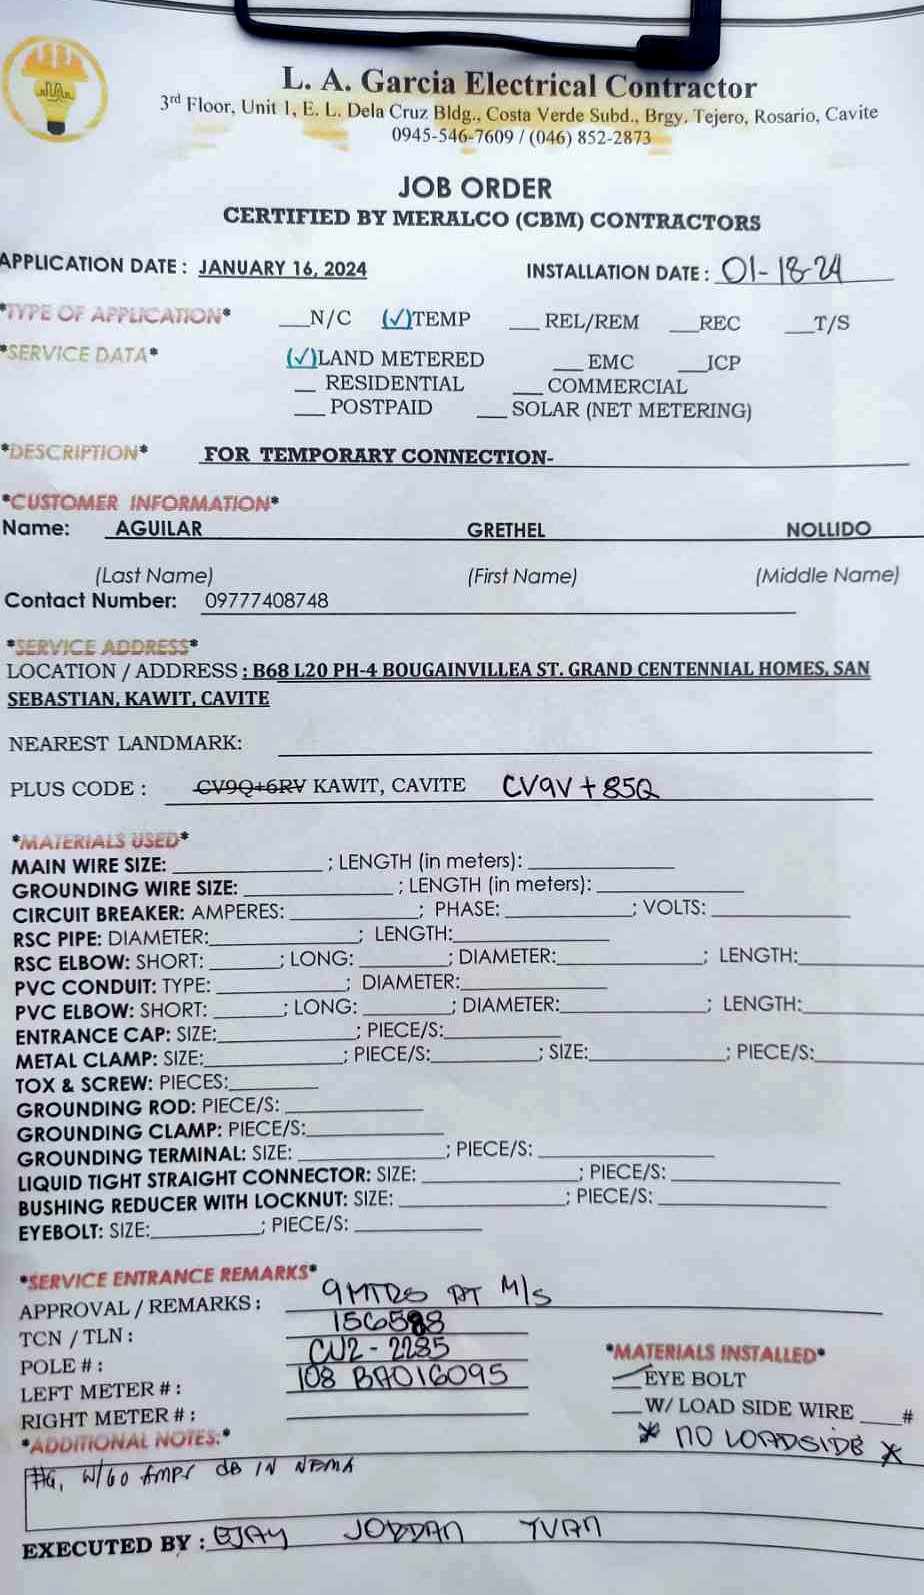 L. A. Garcia Electrical Contractor
3rd Floor, Unit 1, E. L. Dela Cruz Bldg., Costa Verde Subd., Brgy. Tejero, Rosario, Cavite
0945-546-7609 / (046) 852-2873
JOB ORDER
CERTIFIED BY MERALCO (CBM) CONTRACTORS
APPLICATION DATE : JANUARY 16, 2024 INSTALLATION DATE : 01-18-24
*TYPE OF APPLICATION* ___N/C (✓)TEMP ___ REL/REM ___REC ___T/S
*SERVICE DATA* (✓)LAND METERED ___ EMC ___ICP
___ RESIDENTIAL ___ COMMERCIAL
___ POSTPAID ___ SOLAR (NET METERING)
*DESCRIPTION* FOR TEMPORARY CONNECTION-
*CUSTOMER INFORMATION*
Name: AGUILAR GRETHEL NOLLIDO
(Last Name) (First Name) (Middle Name)
Contact Number: 09777408748
*SERVICE ADDRESS*
LOCATION / ADDRESS : B68 L20 PH-4 BOUGAINVILLEA ST. GRAND CENTENNIAL HOMES, SAN
SEBASTIAN, KAWIT, CAVITE
NEAREST LANDMARK:
PLUS CODE : CV9Q+6RV KAWIT, CAVITE CV9V+85Q
*MATERIALS USED*
MAIN WIRE SIZE: ; LENGTH (in meters):
GROUNDING WIRE SIZE: ; LENGTH (in meters):
CIRCUIT BREAKER: AMPERES: ; PHASE: ; VOLTS:
RSC PIPE: DIAMETER: ; LENGTH:
RSC ELBOW: SHORT: ; LONG: ; DIAMETER: ; LENGTH:
PVC CONDUIT: TYPE: ; DIAMETER:
PVC ELBOW: SHORT: ; LONG: ; DIAMETER: ; LENGTH:
ENTRANCE CAP: SIZE: ; PIECE/S:
METAL CLAMP: SIZE: ; PIECE/S: ; SIZE: ; PIECE/S:
TOX & SCREW: PIECES:
GROUNDING ROD: PIECE/S:
GROUNDING CLAMP: PIECE/S:
GROUNDING TERMINAL: SIZE: ; PIECE/S:
LIQUID TIGHT STRAIGHT CONNECTOR: SIZE: ; PIECE/S:
BUSHING REDUCER WITH LOCKNUT: SIZE: ; PIECE/S:
EYEBOLT: SIZE: ; PIECE/S:
*SERVICE ENTRANCE REMARKS*
APPROVAL / REMARKS : 9MTRS AT M/S
TCN / TLN : 156588
POLE # : CU2 - 2285
LEFT METER # : 108 BA016095
RIGHT METER # :
*MATERIALS INSTALLED*
EYE BOLT
___W/ LOAD SIDE WIRE ____#
* NO LOADSIDE *
*ADDITIONAL NOTES:*
#6, W/60 AMPS CB IN NEMA
EXECUTED BY : BJAY JORDAN YVAN